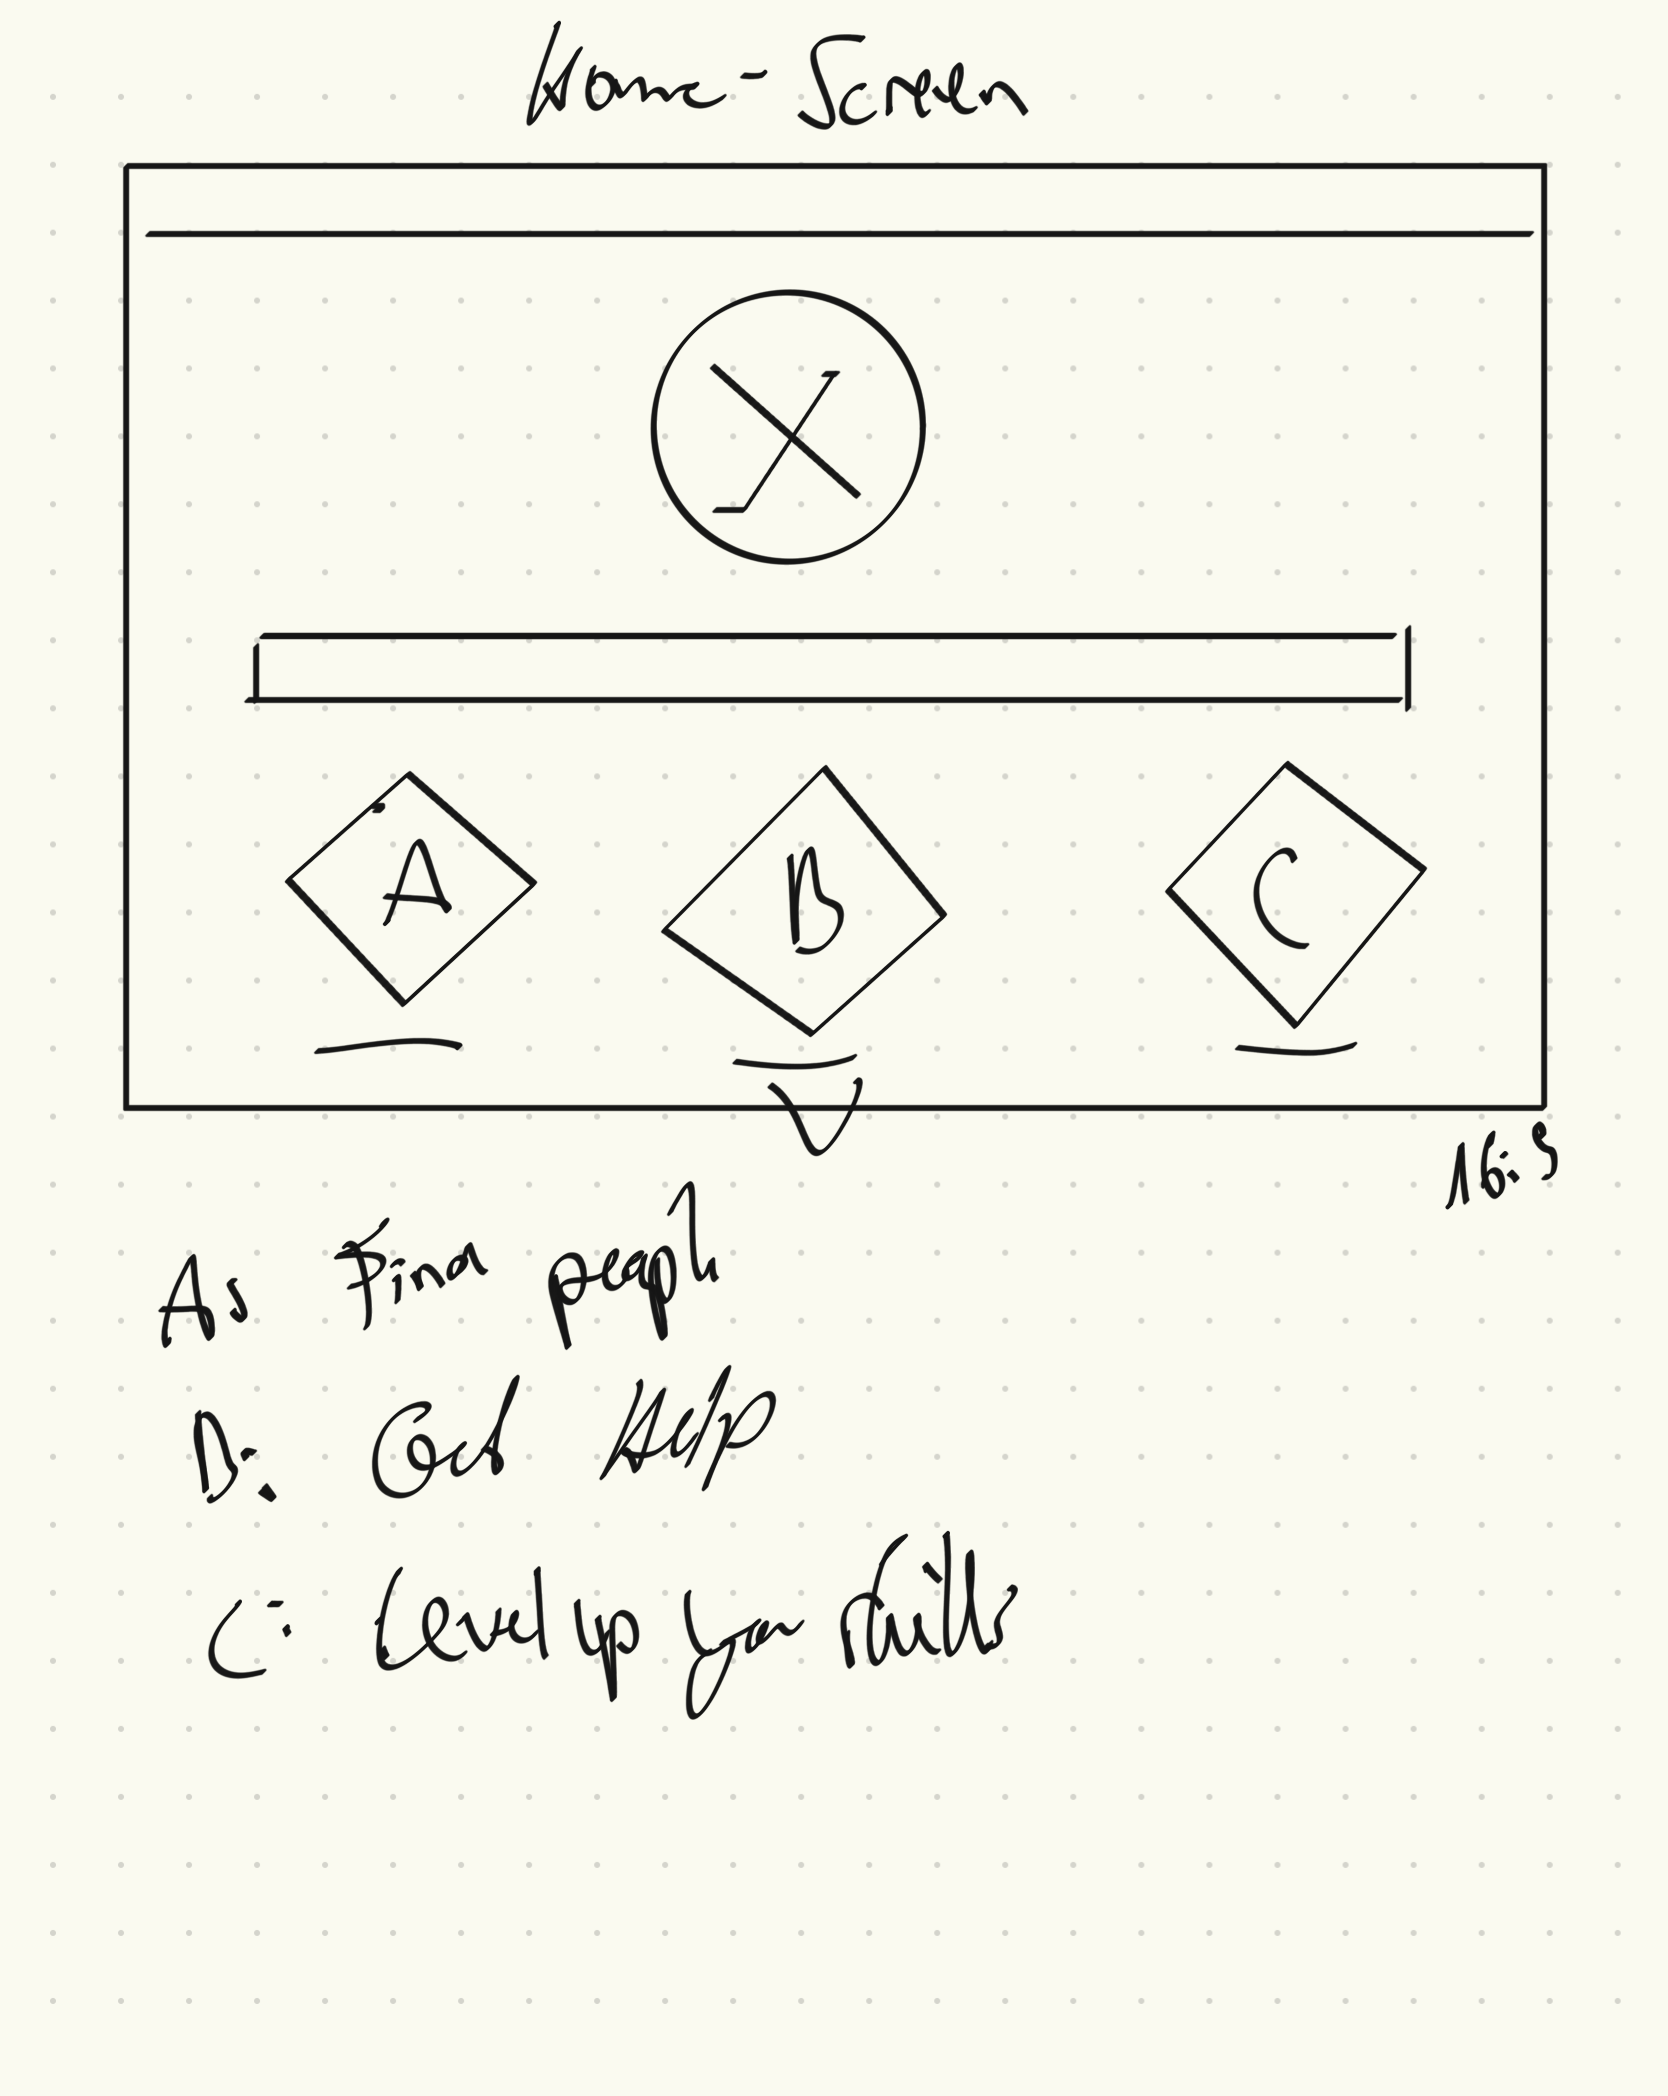 Home-Screen
A
B
C
16:9
A: Find people
B: Get Help
C: Level up your skills